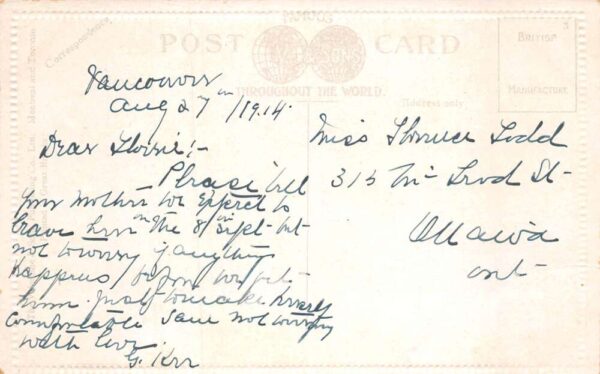 FAMOUS
POST CARD
THROUGHOUT THE WORLD.
Correspondence
Address only
BRITISH
MANUFACTURE
Vancouver
Aug 27th /1914.
Dear Florrie :-
Please tell
your mother we expect to
leave here on the 8th Sept but
not to worry if anything
happens before we get
home. Just to make herself
comfortable and not worry
with love
G. Kerr
Miss Florence Todd
315 McLeod St
Ottawa
Ont